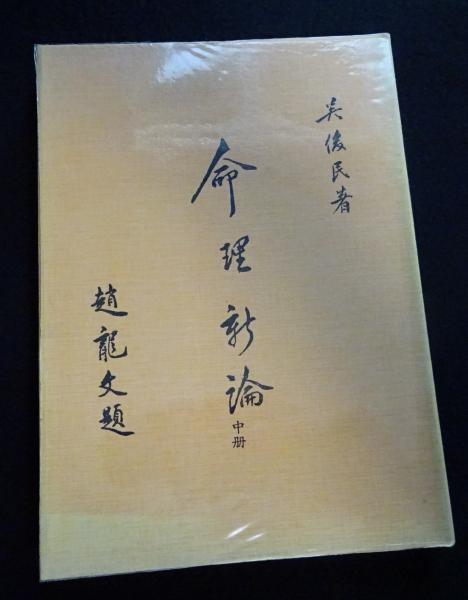 吳俊民著
命理新論
中册
趙龍文題